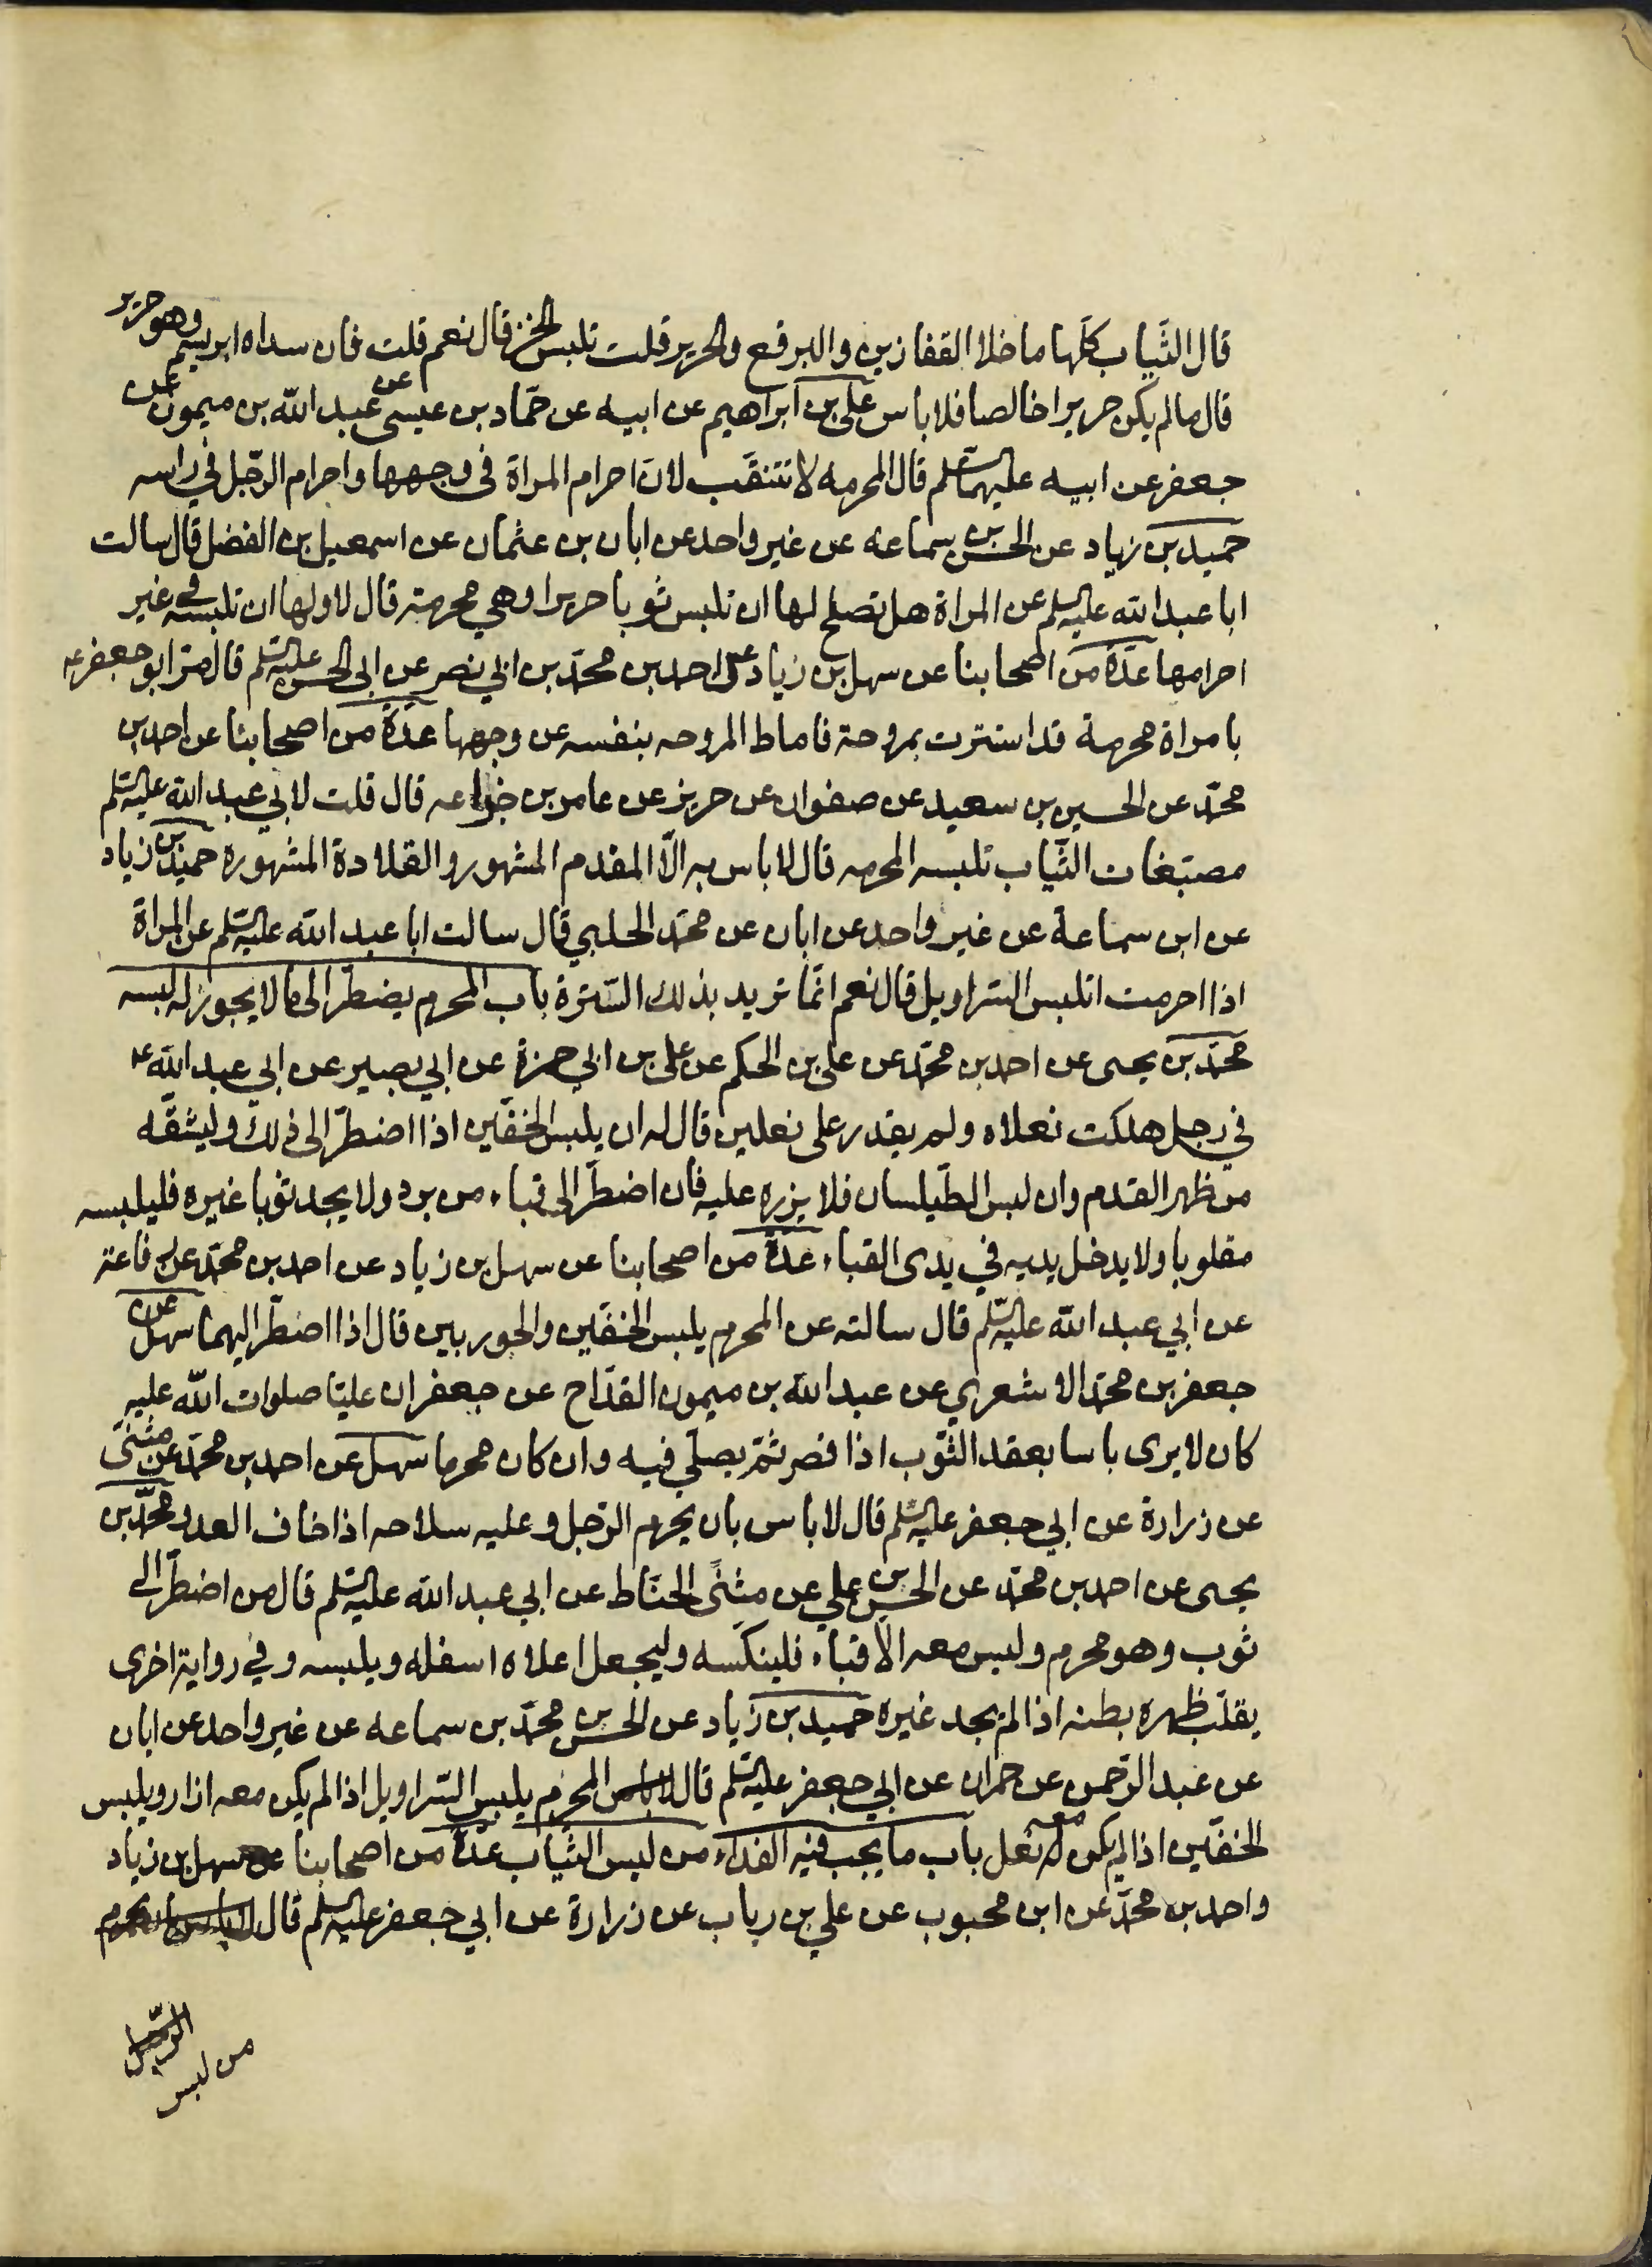 قال الثياب كلها ما خلا القفازين والبرقع والحرير قلت تلبس الخز قال نعم قلت فان سداه ابريسم وهو حرير
قال ما لم يكن حريرا خالصا فلا باس علي بن ابراهيم عن ابيه عن حماد بن عيسى عن عبد الله بن ميمون عن
جعفر عن ابيه عليهما السلم قال المحرمه لا تتنقب لان احرام المراة في وجهها واحرام الرجل في راسه
حميد بن زياد عن الحسن بن سماعه عن غير واحد عن ابان بن عثمان عن اسمعيل بن الفضل قال سالت
ابا عبد الله عليه السلم عن المراة هل تصلح لها ان تلبس ثوبا حريرا وهي محرمة قال لا ولها ان تلبسه في غير
احرامها عدة من اصحابنا عن سهل بن زياد عن احمد بن محمد بن ابي نصر عن ابي الحسن عليه السلم قال مر ابو جعفر ع
بامراة محرمة قد استترت بمروحة فاماط المروحه بنفسه عن وجهها عدة من اصحابنا عن احمد بن
محمد عن الحسين بن سعيد عن صفوان عن حريز عن عامر بن خزاعه قال قلت لابي عبد الله عليه السلم
مصتبغات الثياب تلبسه المحرمه قال لا باس به الا المقدم المشهور والقلادة المشهوره حميد بن زياد
عن ابن سماعة عن غير واحد عن ابان عن محمد الحلبي قال سالت ابا عبد الله عليه السلم عن المراة
اذا احرمت اتلبس السراويل قال نعم انما تريد بذلك السترة باب المحرم يضطر الى ما لا يجوز له لبسه
محمد بن يحيى عن احمد بن محمد عن علي بن الحكم عن علي بن ابي حمزة عن ابي بصير عن ابي عبد الله ع
في رجل هلكت نعلاه ولم يقدر على نعلين قال له ان يلبس الخفين اذا اضطر الى ذلك وليشقه
من ظهر القدم وان لبس الطيلسان فلا يزره عليه فان اضطر الى قباء من برد ولا يجد ثوبا غيره فليلبسه
مقلوبا ولا يدخل يديه في يدى القباء عدة من اصحابنا عن سهل بن زياد عن احمد بن محمد عن رفاعة
عن ابي عبد الله عليه السلم قال سالته عن المحرم يلبس الخفين والجوربين قال اذا اضطر اليهما سهل عن
جعفر بن محمد الاشعري عن عبد الله بن ميمون القداح عن جعفر ان عليا صلوات الله عليه
كان لا يرى باسا بعقد الثوب اذا قصر ثم يصلي فيه وان كان محرما سهل عن احمد بن محمد عن مثنى
عن زرارة عن ابي جعفر عليه السلم قال لا باس بان يحرم الرجل وعليه سلاحه اذا خاف العدو محمد بن
يحيى عن احمد بن محمد عن الحسن بن علي عن مثنى الحناط عن ابي عبد الله عليه السلم قال من اضطر الى
ثوب وهو محرم وليس معه الا قباء فلينكسه وليجعل اعلاه اسفله ويلبسه وفي رواية اخرى
يقلب ظهره بطنه اذا لم يجد غيره حميد بن زياد عن الحسن بن محمد بن سماعه عن غير واحد عن ابان
عن عبد الرحمن عن حمران عن ابي جعفر عليه السلم قال المحرم يلبس السراويل اذا لم يكن معه ازار ويلبس
الخفين اذا لم يكن معه نعل باب ما يجب فيه الفداء من لبس الثياب عدة من اصحابنا عن سهل بن زياد
واحمد بن محمد عن ابن محبوب عن علي بن رباب عن زرارة عن ابي جعفر عليه السلم قال لا باس بان يحرم
الرجل
من لبس